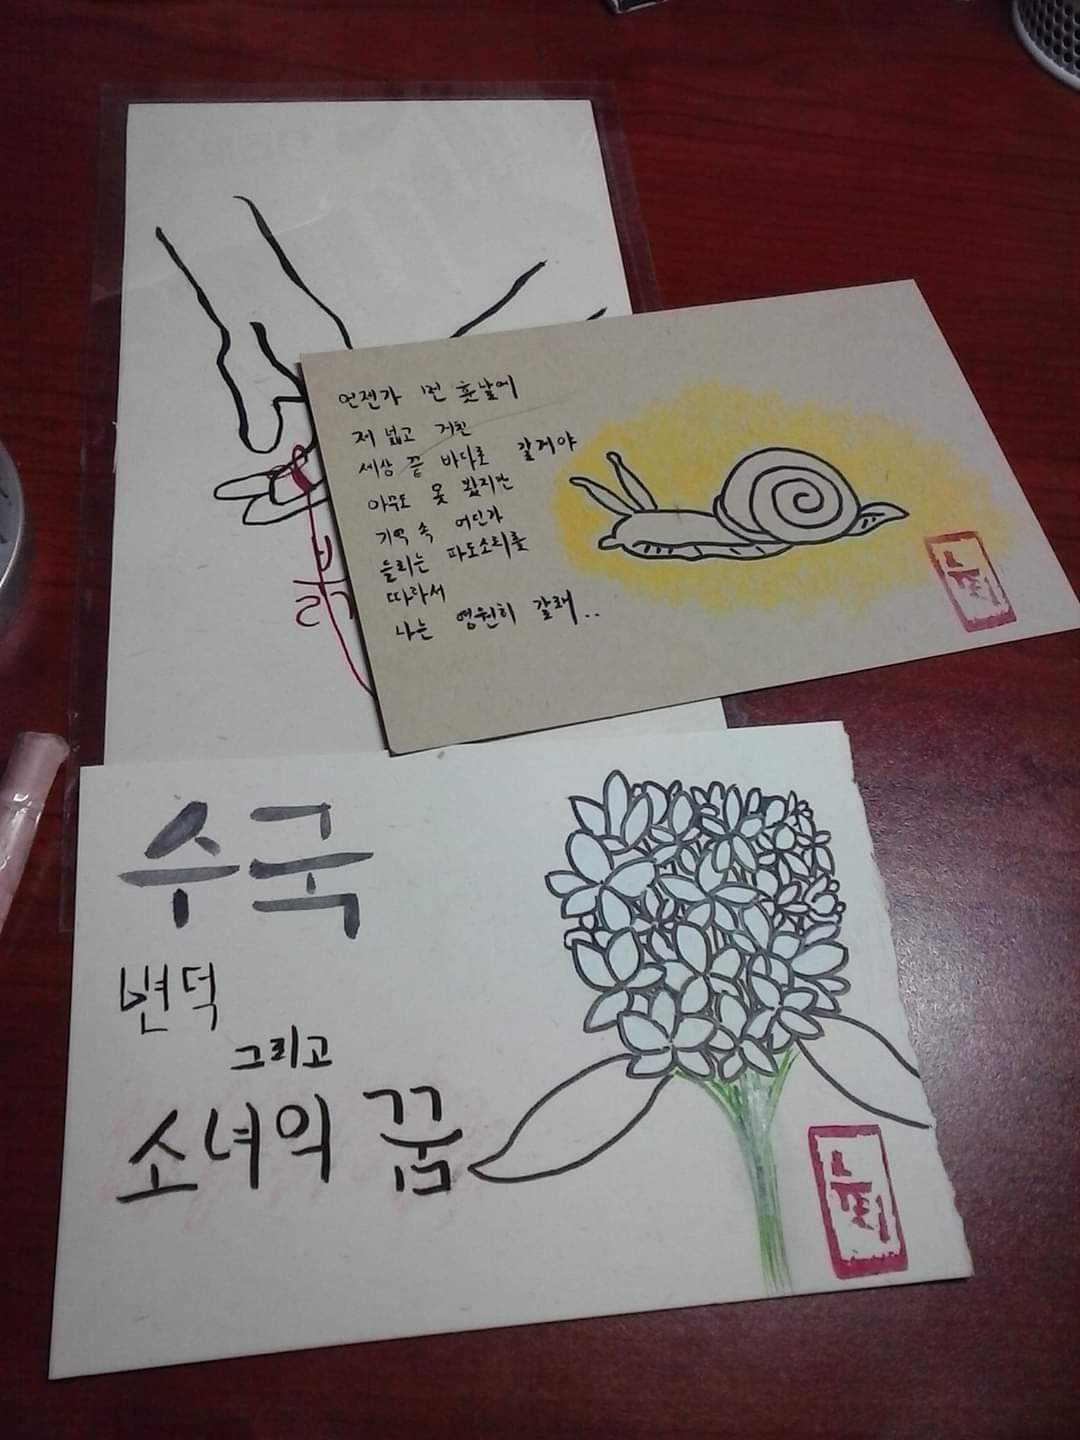 언젠가 먼 훗날에
저 넓고 거친
세상 끝 바다로 갈거야
아무도 못 봤지만
기억 속 어딘가
들리는 파도소리를
따라서
나는 영원히 갈래..
수국
변덕
그리고
소녀의 꿈